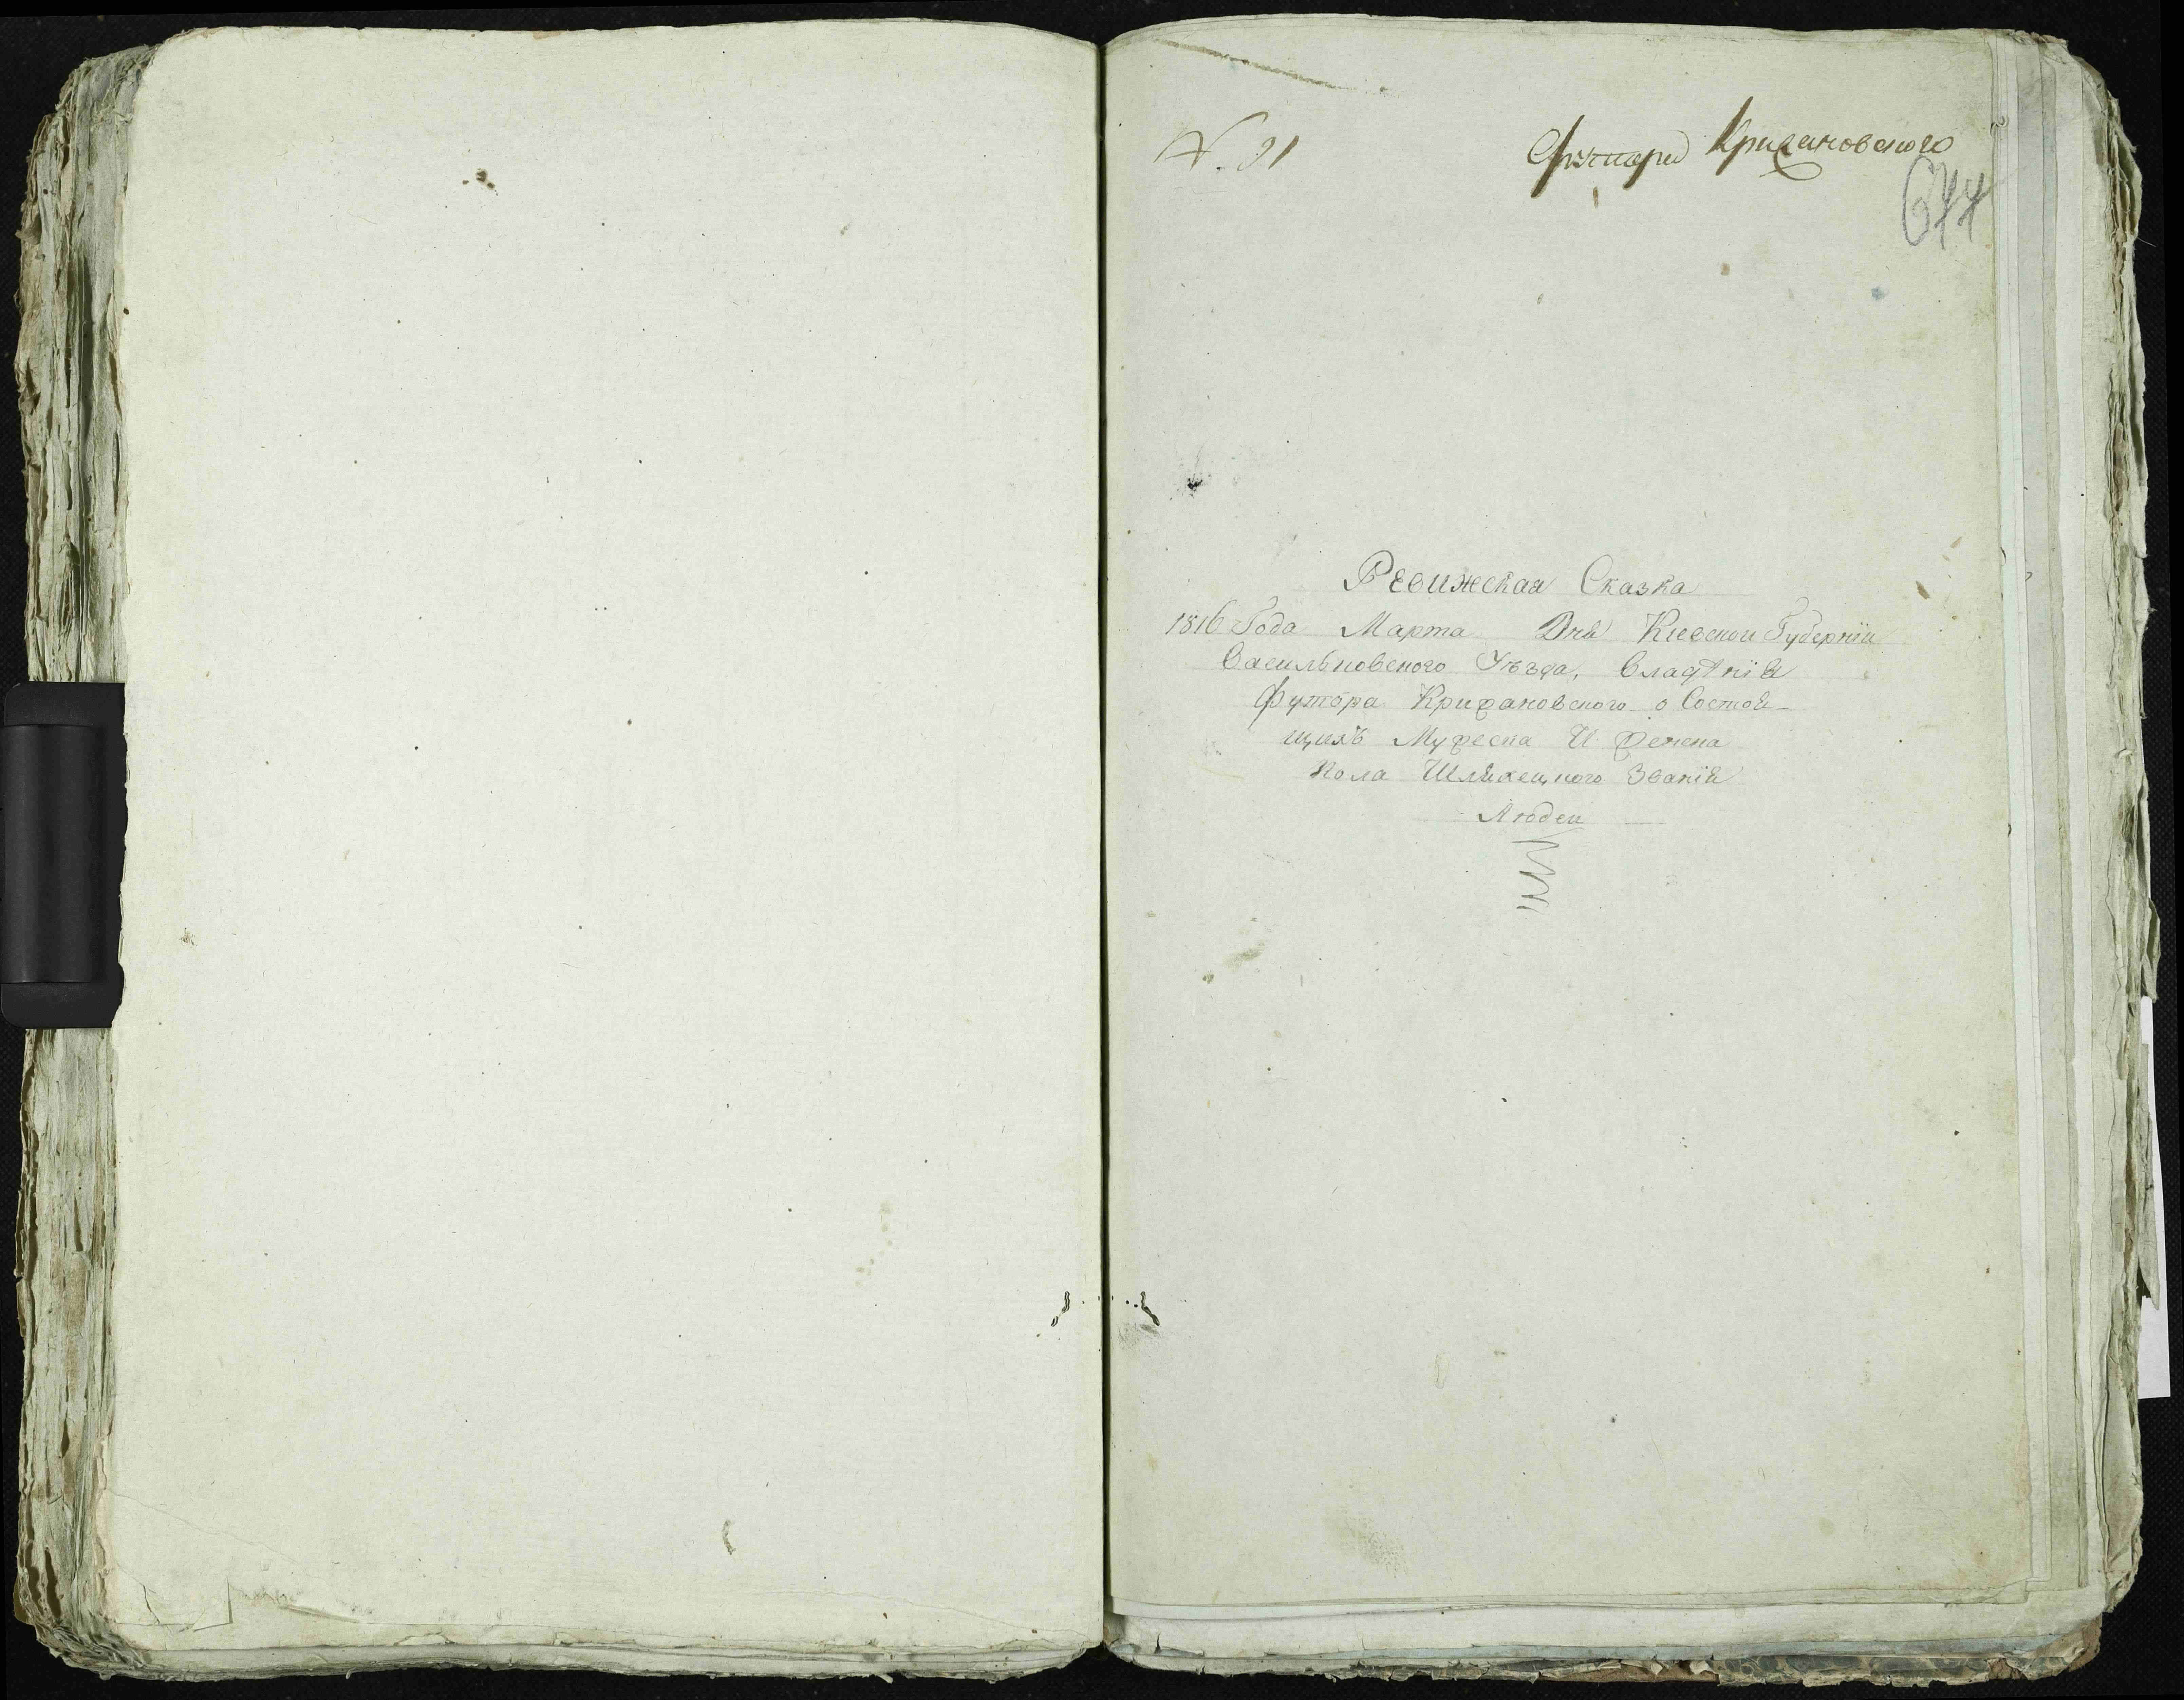 N. 91
Футора Крижановского
644
Ревижская Сказка
1816 Года Марта Дня Киевской Губернїи
Васильковского Уѣзда, Владѣнїя
Футора Крижановского о Состоя-
щихъ Мужеска И Женска
Пола Шляхецкого Званїя
Людей